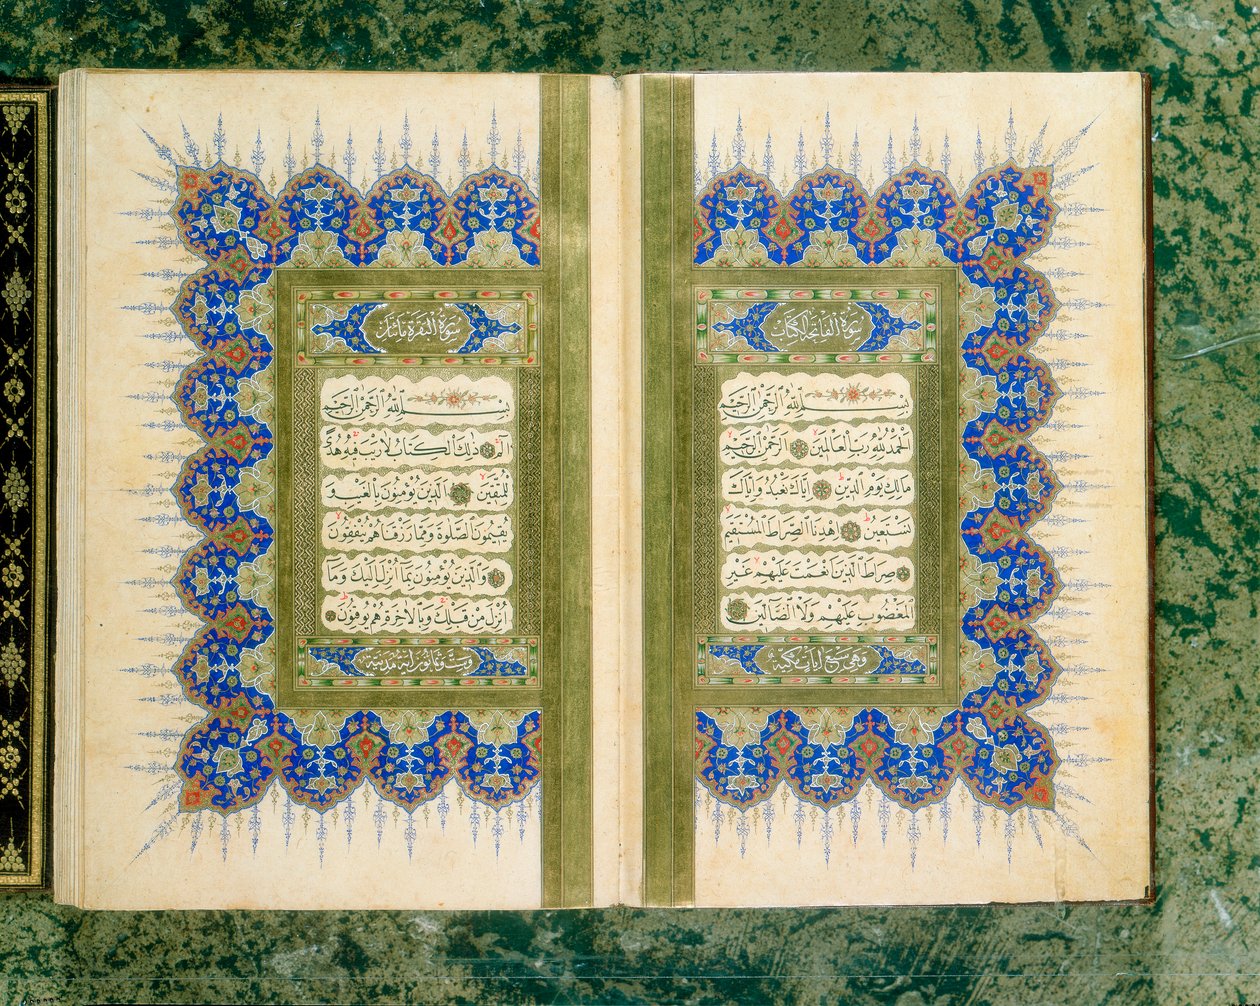 سورة الفاتحة الكتاب
بِسْمِ اللّٰهِ الرَّحْمٰنِ الرَّحِيمِ
اَلْحَمْدُ لِلّٰهِ رَبِّ الْعَالَمِينَ الرَّحْمٰنِ الرَّحِيمِ
مَالِكِ يَوْمِ الدِّينِ اِيَّاكَ نَعْبُدُ وَاِيَّاكَ
نَسْتَعِينُ اِهْدِنَا الصِّرَاطَ الْمُسْتَقِيمَ
صِرَاطَ الَّذِينَ اَنْعَمْتَ عَلَيْهِمْ غَيْرِ
الْمَغْضُوبِ عَلَيْهِمْ وَلَا الضَّالِّينَ
وهى سبع ايات مكية
سورة البقرة مائتان
بِسْمِ اللّٰهِ الرَّحْمٰنِ الرَّحِيمِ
الٓمٓ ذٰلِكَ الْكِتَابُ لَا رَيْبَ فِيهِ هُدًى
لِلْمُتَّقِينَ اَلَّذِينَ يُؤْمِنُونَ بِالْغَيْبِ وَ
يُقِيمُونَ الصَّلٰوةَ وَمِمَّا رَزَقْنَاهُمْ يُنْفِقُونَ
وَالَّذِينَ يُؤْمِنُونَ بِمَا اُنْزِلَ اِلَيْكَ وَمَا
اُنْزِلَ مِنْ قَبْلِكَ وَبِالْاٰخِرَةِ هُمْ يُوقِنُونَ
وست وثمانون اية مدنية